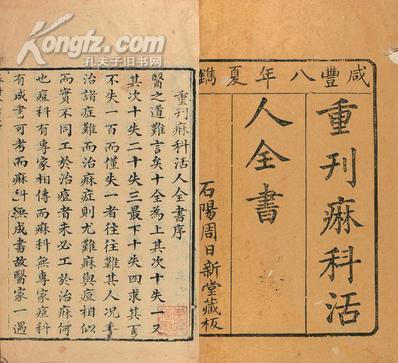 Kongfz.com
孔夫子旧书网
咸豐八年夏鐫
重刊麻科活
人全書
石陽周日新堂藏板
重刊麻科活人全書序
醫之道難言矣十全為上其次十失一又
其次十失二十失三最下十失四求其
不失一百而僅失一者往往難其人况乎
治諸症難而治麻症則尤難麻與痘相似
而實不同工於治痘者未必工於治麻何
也痘科有專家相傳而麻科無專家痘科
有成書可考而麻科無成書故醫家一遇